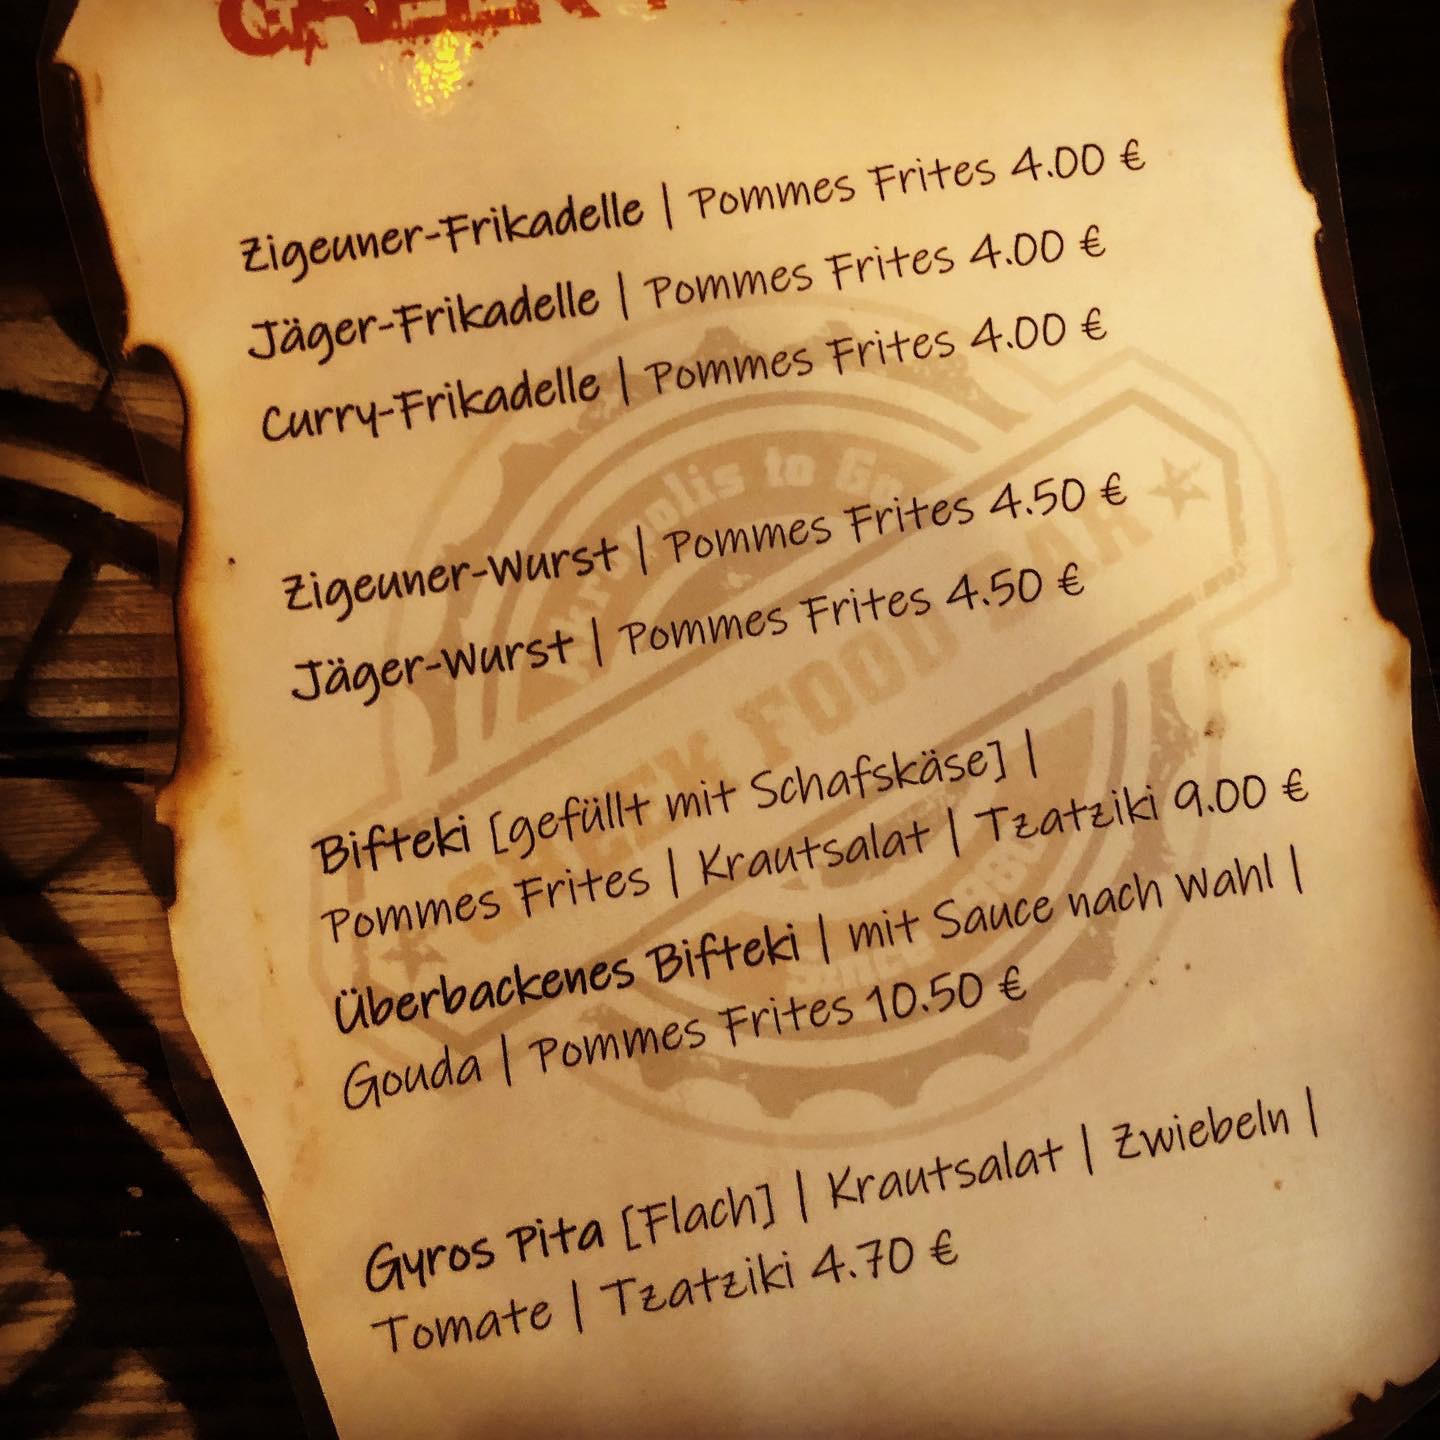 GREEK
Zigeuner-Frikadelle | Pommes Frites 4.00 €
Jäger-Frikadelle | Pommes Frites 4.00 €
Curry-Frikadelle | Pommes Frites 4.00 €
Zigeuner-Wurst | Pommes Frites 4.50 €
Jäger-Wurst | Pommes Frites 4.50 €
Bifteki [gefüllt mit Schafskäse] |
Pommes Frites | Krautsalat | Tzatziki 9.00 €
Überbackenes Bifteki | mit Sauce nach Wahl |
Gouda | Pommes Frites 10.50 €
Gyros Pita [Flach] | Krautsalat | Zwiebeln |
Tomate | Tzatziki 4.70 €
to
GREEK FOOD BAR
Since